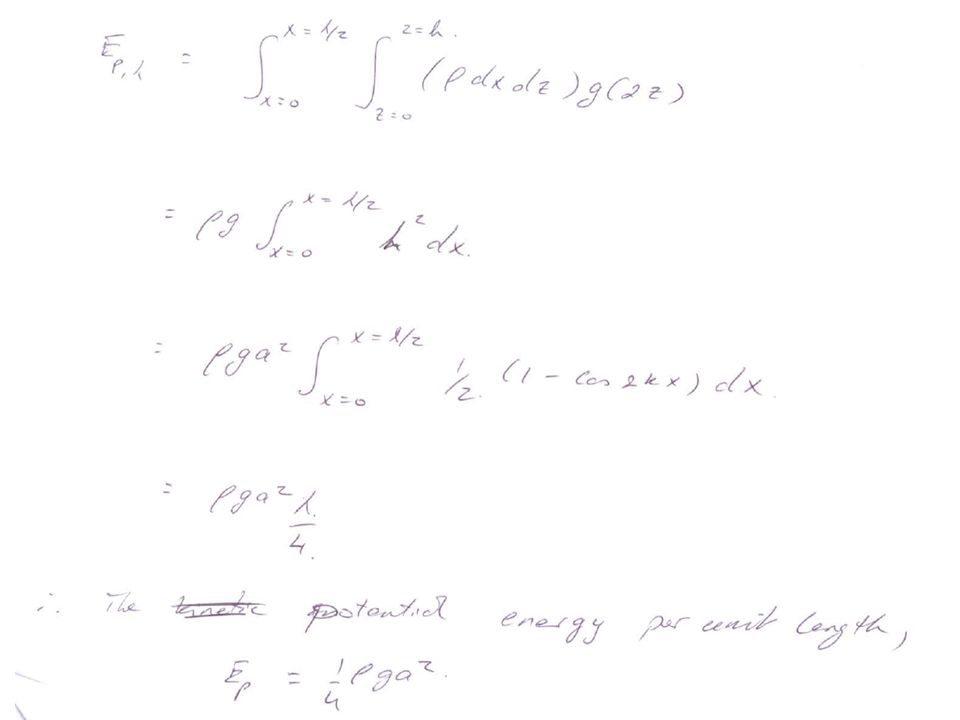 E_{p,λ} = ∫_{x=0}^{x=λ/2} ∫_{z=0}^{z=h.} (ρ dx dz) g(2z)
= ρg ∫_{x=0}^{x=λ/2} h² dx.
= ρga² ∫_{x=0}^{x=λ/2} 1/2. (1 - cos 2kx) dx.
= ρga² λ/4.
∴ The kinetic potential energy per unit length,
E_p = 1/4 ρga².